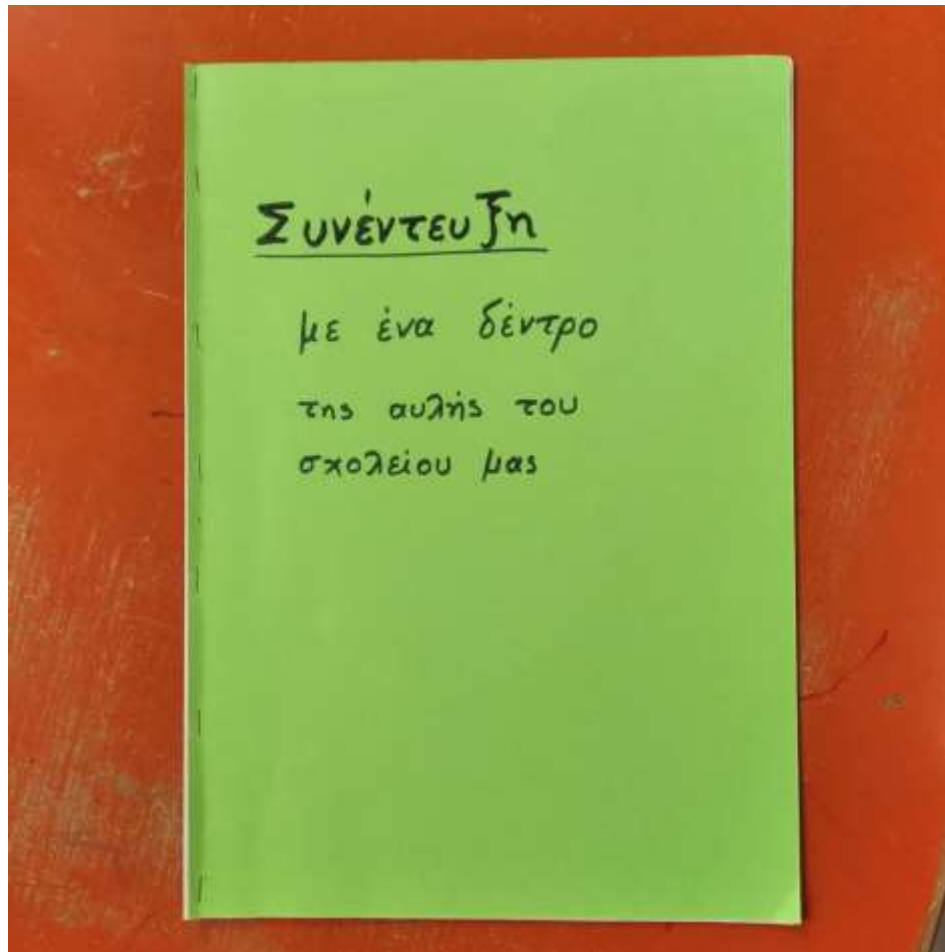 Συνέντευξη
με ένα δέντρο
της αυλής του
σχολείου μας